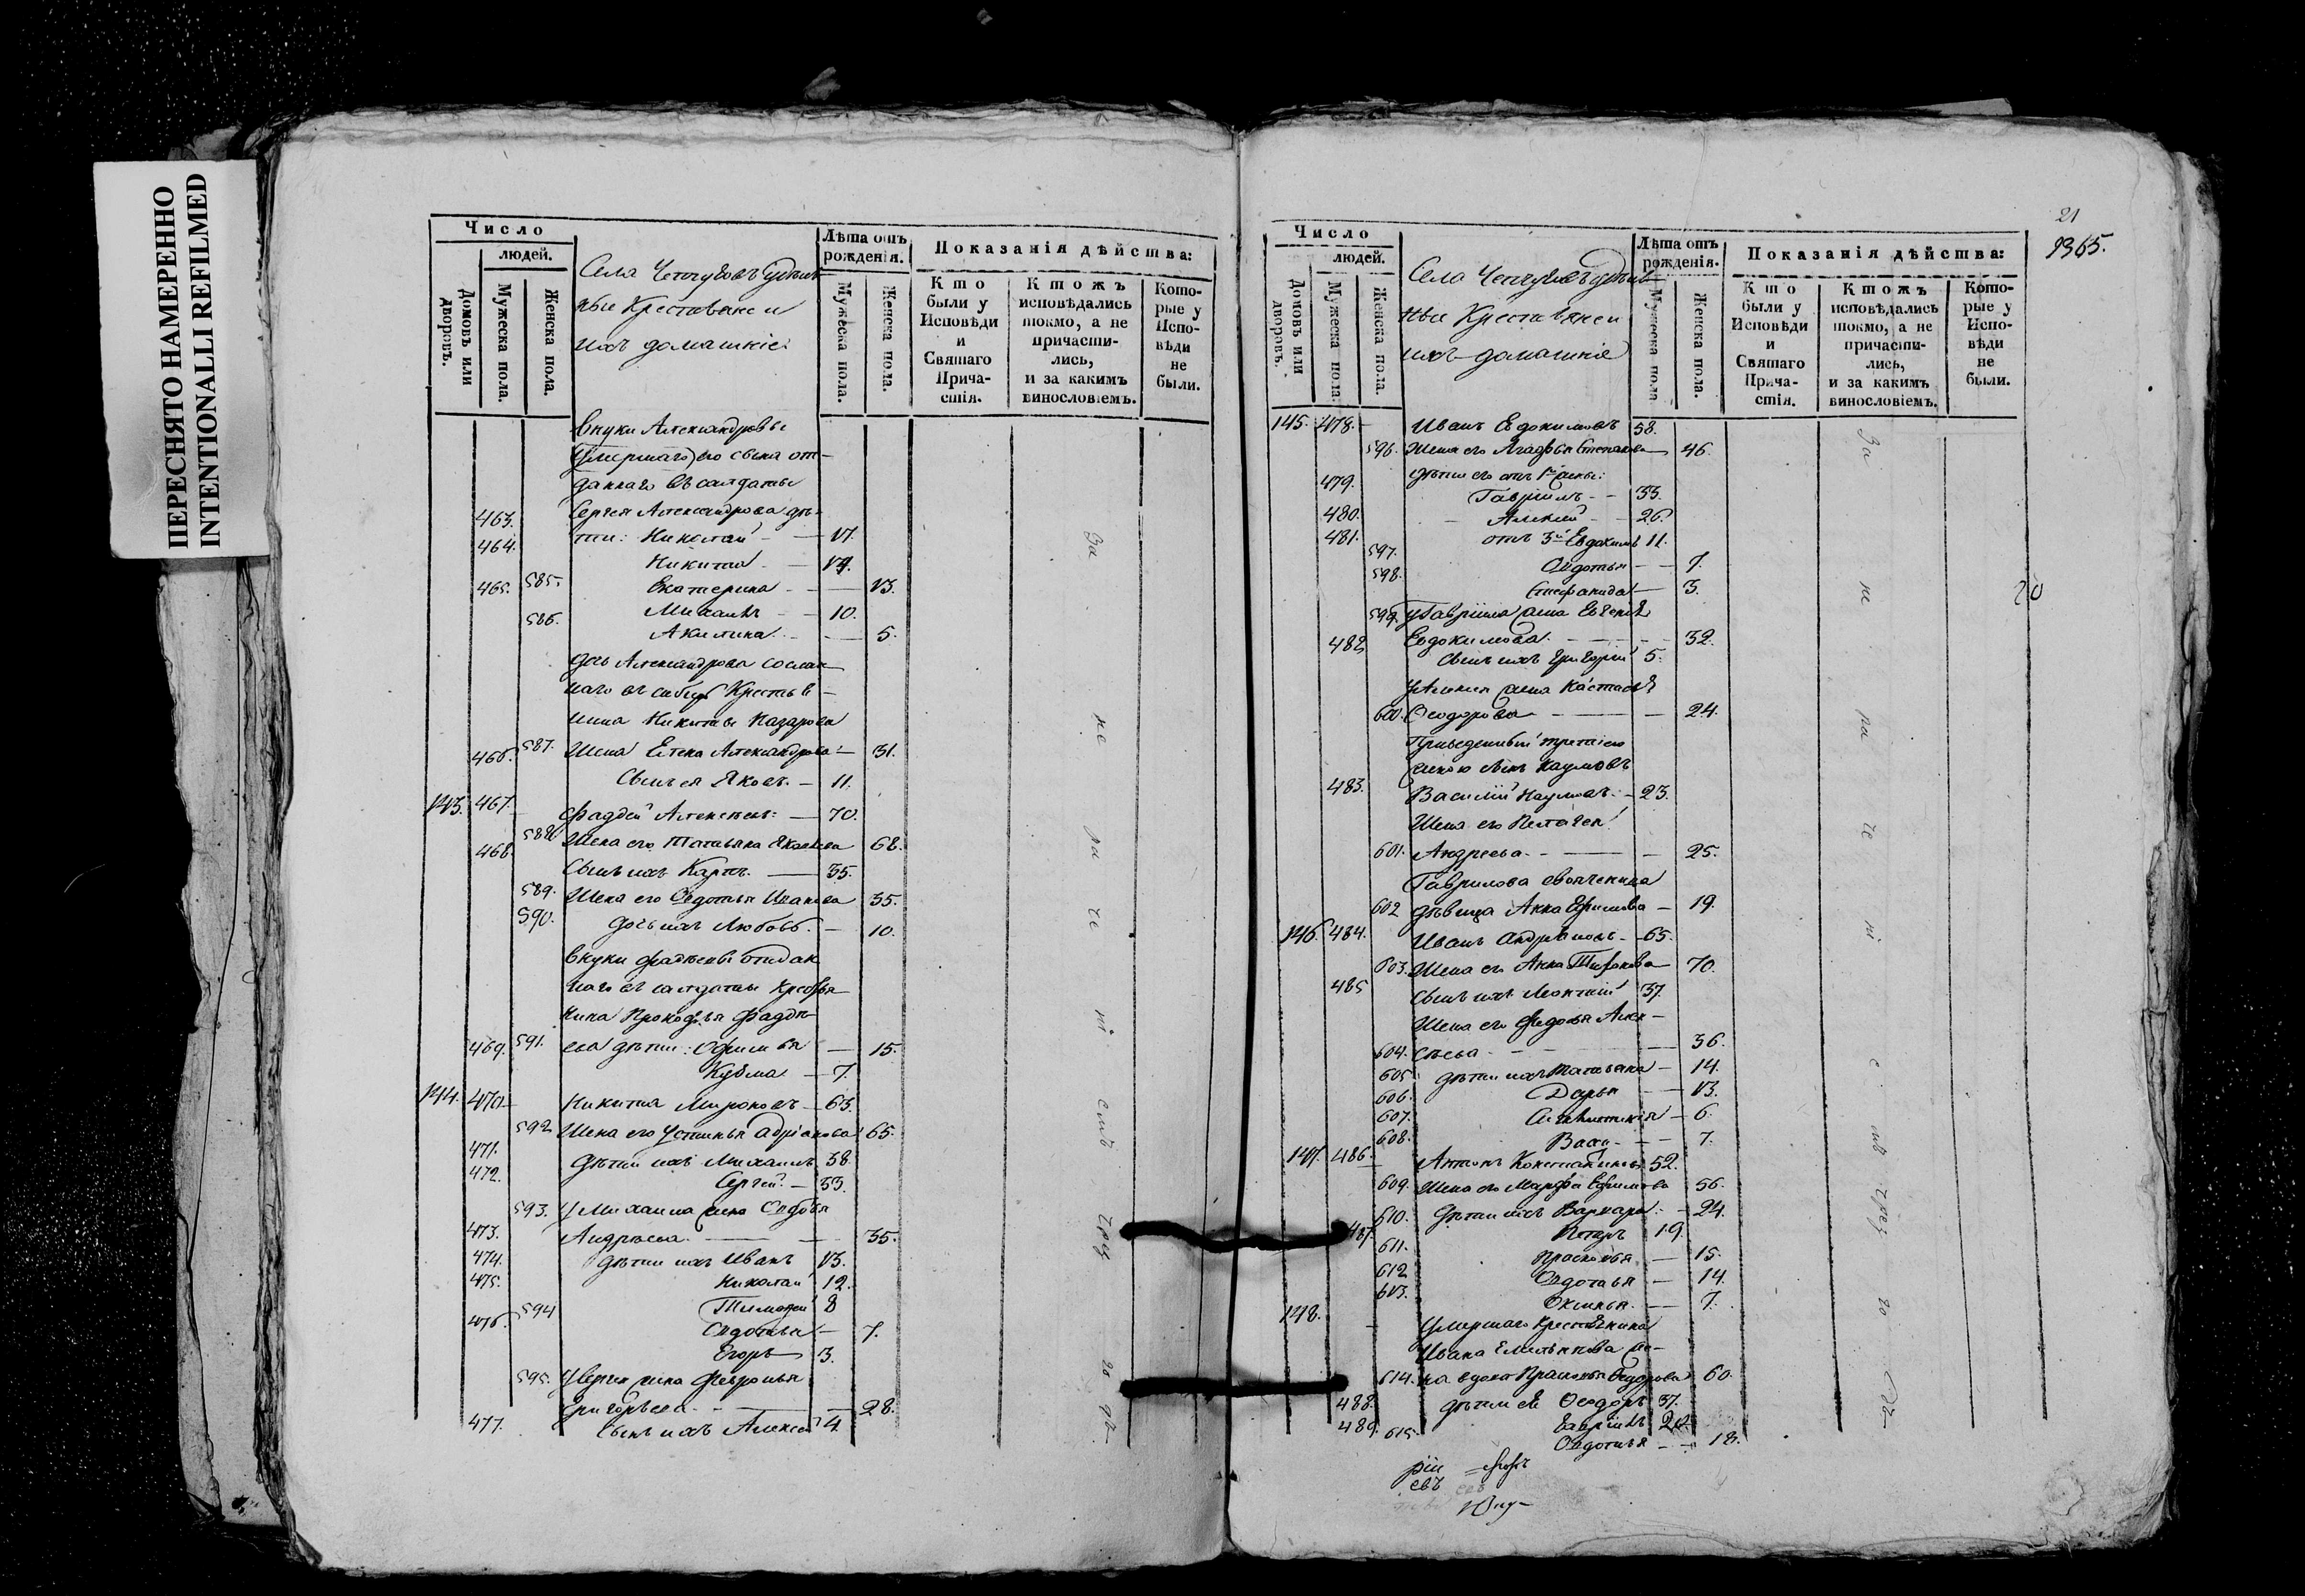 ПЕРЕСНЯТО НАМЕРЕННО
INTENTIONALLI REFILMED
Число
людей.
Домовъ или дворовъ.
Мужеска пола.
Женска пола.
Лѣта отъ рожденія.
Мужеска пола.
Женска пола.
Показанія дѣйства:
Кто были у Исповѣди и Святаго Прича-стія.
Ктожъ исповѣдались токмо, а не причасти-лись, и за какимъ винословіемъ.
Кото-рые у Испо-вѣди не были.
Села
ные Крестьяне и
ихъ домашніе
Внуки Александровы
умершаго его сына от-
даннаго въ салдаты
463. Сергея Александрова дѣ-
464. ти: Николай 17.
Никита 14.
465. 585. Екатерина 13.
Михаилъ 10.
586. Акилина 5.
дочь Александрова сослан
наго въ сибирь Крестья-
нина Никиты Назарова
466. 587. Жена Елена Александрова 31.
Сынъ ея Яковъ 11.
143. 467. Фаддей Алексеевъ 70.
468. 588. Жена его Татьяна Яковлева 68.
Сынъ ихъ Карпъ 35.
589. Жена его Овдотья Иванова 35.
590. Дочь ихъ Любовь 10.
Внуки Фадѣевы отдан
наго въ салдаты Крестья
нина Прокофья Фадѣ-
469. 591. ева дѣти: Офимья 15.
Кузма 7.
144. 470. Никита Мироновъ 63.
592 Жена его Устинья Адріанова 65.
471. дѣти ихъ Михаилъ 38.
472. Сергей 33.
593. У Михаила жена Овдотья
473. Андреева 35.
474. дѣти ихъ Иванъ 13.
475. Николай 12.
594 Тимофей 8
476. Овдотья 7.
Егоръ 3.
595. У Сергея жена Февронья
Григорьева 28.
477. Сынъ ихъ Алексей 4.
21
1365.
Число
людей.
Домовъ или дворовъ.
Мужеска пола.
Женска пола.
Лѣта отъ рожденія.
Мужеска пола
Женска пола.
Показанія дѣйства:
Кто были у Исповѣди и Святаго Прича-стія.
Ктожъ исповѣдались токмо, а не причасти-лись, и за какимъ винословіемъ.
Кото-рые у Испо-вѣди не были.
Села
ные Крестьяне и
ихъ домашніе
145. 478. Иванъ Евдокимовъ 58.
596. Жена его Агафья Степанова 46.
479. дѣти его отъ 1й жены:
Гавріилъ 33.
480. Алексей 26.
481. отъ 3й Евдокимъ 11.
597. Овдотья 7.
598. Степанида 3.
599. у Гавріила жена Евгенія
Евдокимова 32.
482. Сынъ ихъ Григорій 5.
у Алексея жена Настасья
600. Ѳеодорова 24.
Приведенный третіею
женою сынъ Наумовъ
483. Василій Наумовъ 23.
Жена его Пелагея
601. Андреева 25.
Гаврилова своячина
602 дѣвица Анна Ефимова 19.
146. 484. Иванъ Андріановъ 65.
603. Жена его Анна 70.
485 Сынъ ихъ Леонтій 37.
Жена его Федосья Алек-
604. сѣева 36.
605 дѣти ихъ Татьяна 14.
606. Дарья 13.
607. 6.
608. 7.
147. 486. Антонъ Константиновъ 52.
609. Жена его Марфа Ефимова 56.
610. дѣти ихъ Варвара 24.
487. Петръ 19.
611. Прасковья 15.
612 Овдотья 14.
613. Оксинья 7.
148. Умершаго крестьянина
Ивана Емельянова же-
614. на вдова Прасковья Ѳедорова 60.
488. дѣти ея Ѳеодоръ 37.
489. Гавріилъ 20.
615. Овдотья 18.
20